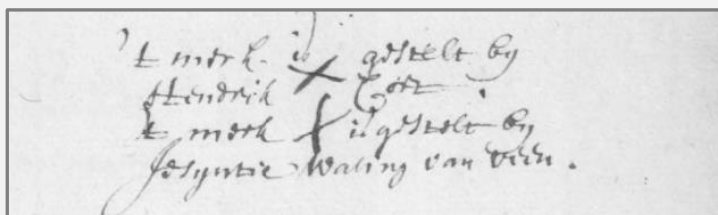 't merk is X gestelt by
Hendrik Cort.
't merk X is gestelt by
Jesyntie Waling van Veen.